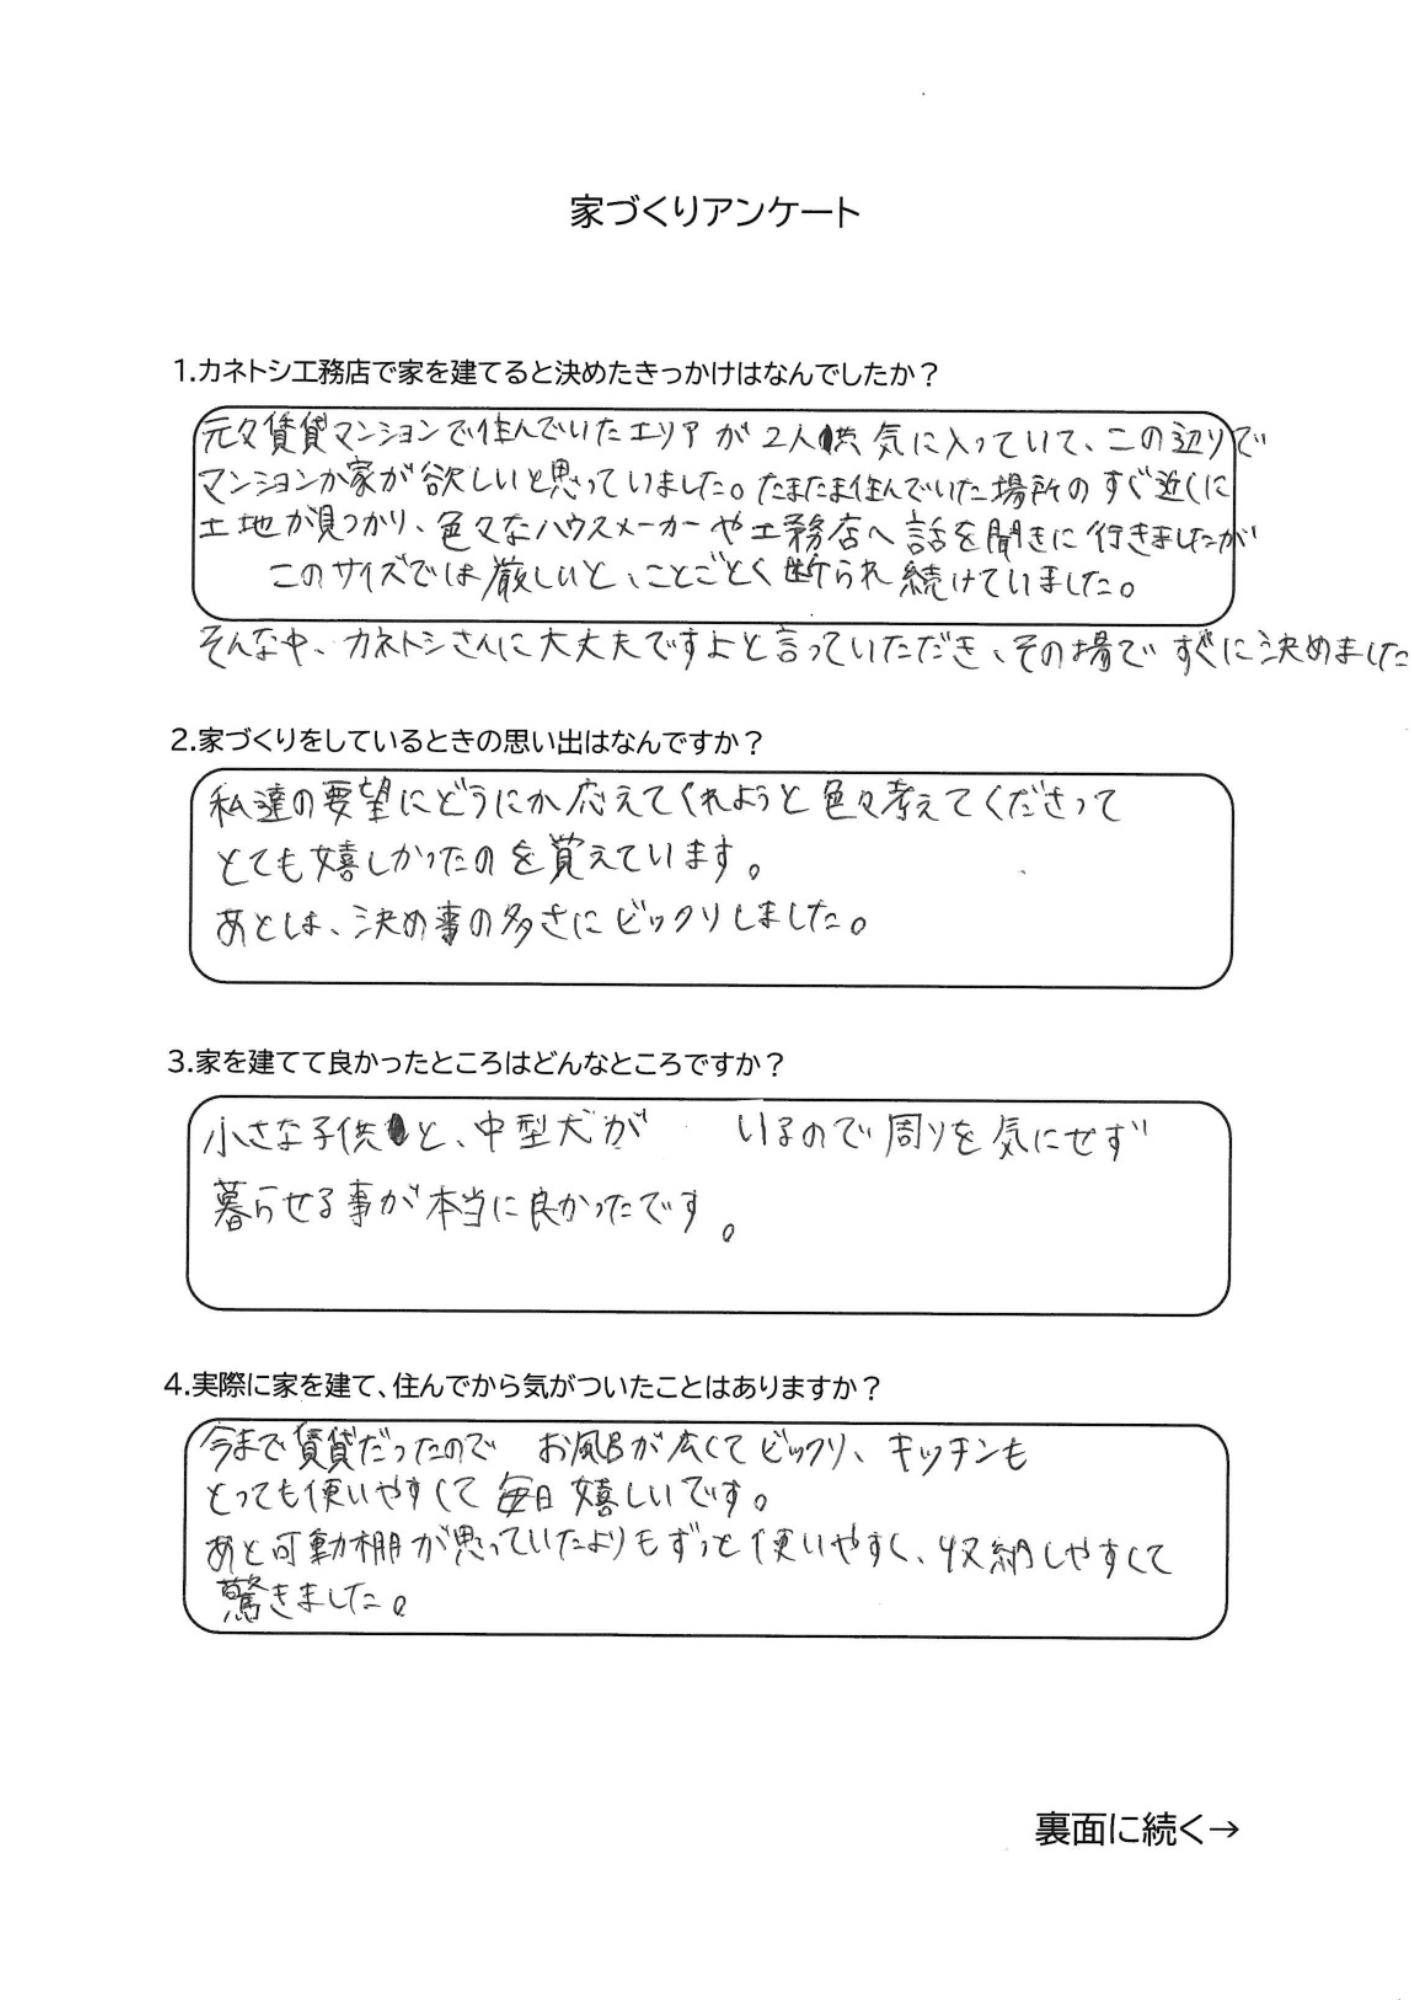 家づくりアンケート
1.カネトシ工務店で家を建てると決めたきっかけはなんでしたか？
元々賃貸マンションで住んでいたエリアが2人共気に入っていて、この辺りで
マンションか家が欲しいと思っていました。たまたま住んでいた場所のすぐ近くに
土地が見つかり、色々なハウスメーカーや工務店へ話を聞きに行きましたが
このサイズでは厳しいと、ことごとく断られ続けていました。
そんな中、カネトシさんに大丈夫ですよと言っていただき、その場ですぐに決めました
2.家づくりをしているときの思い出はなんですか？
私達の要望にどうにか応えてくれようと色々考えてくださって
とても嬉しかったのを覚えています。
あとは、決め事の多さにビックリしました。
3.家を建てて良かったところはどんなところですか？
小さな子供と、中型犬が いるので周りを気にせず
暮らせる事が本当に良かったです。
4.実際に家を建て、住んでから気がついたことはありますか？
今まで賃貸だったので お風呂が広くてビックリ、キッチンも
とっても使いやすくて毎日嬉しいです。
あと可動棚が思っていたよりもずっと使いやすく、収納しやすくて
驚きました。
裏面に続く→